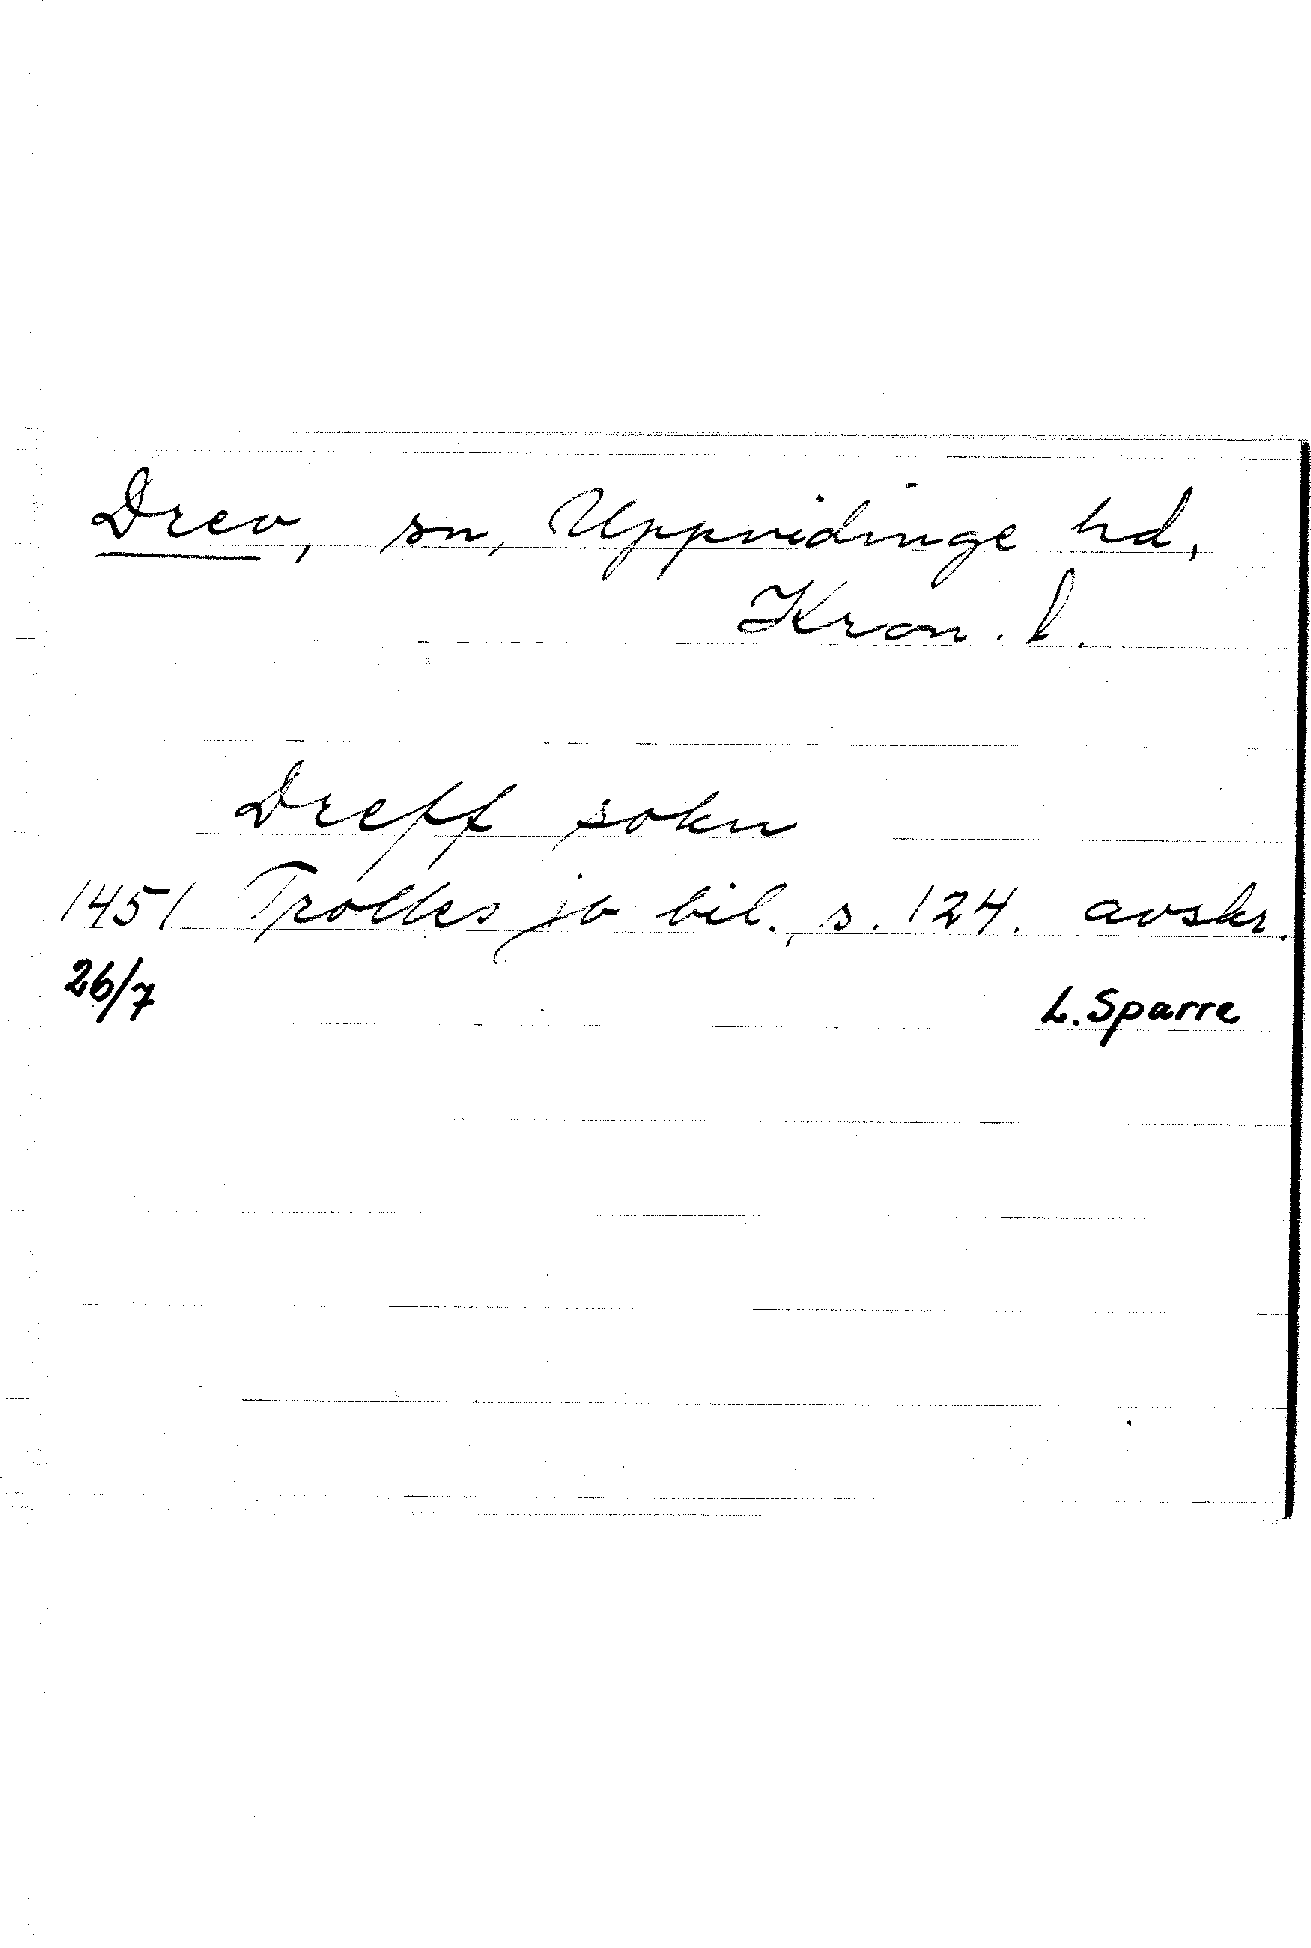 Drev, sn, Uppvidinge hd,
Kron. l.
Dreff sokn
1451 Trolles jb bil., s. 124. avskr.
26/7 L. Sparre